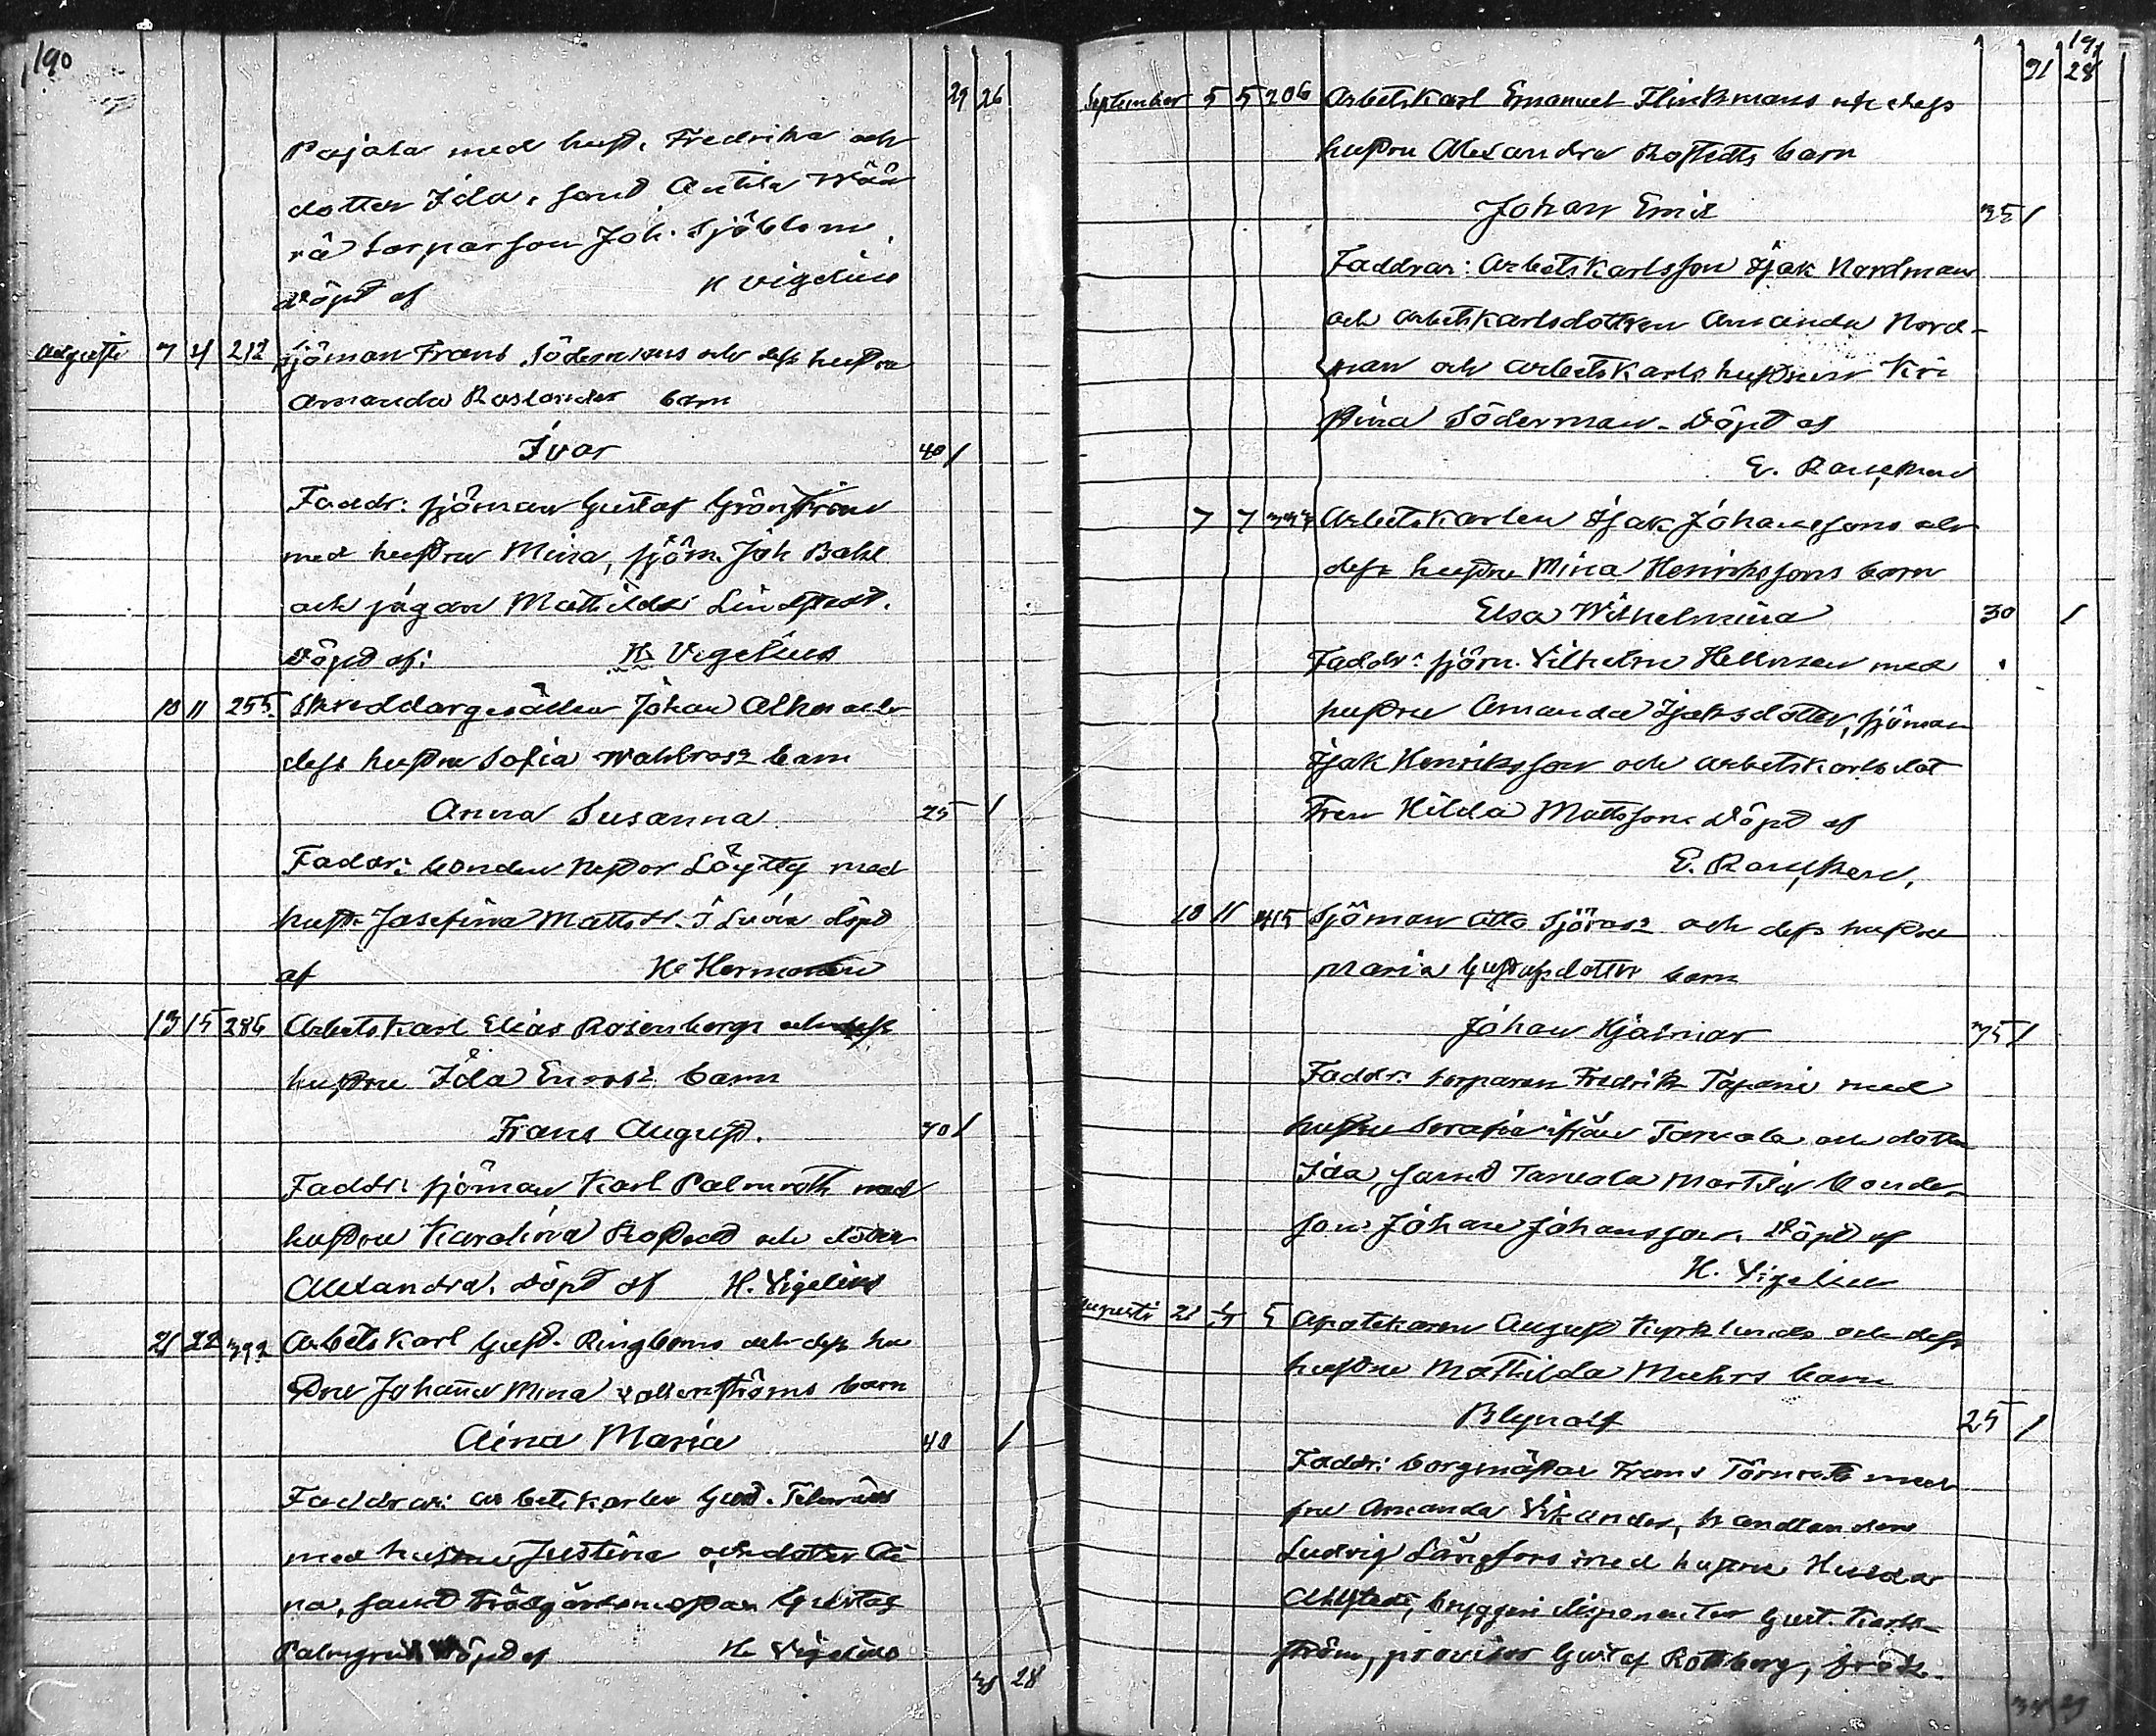 190
29 26
Pajala med hust. Fredrika och
dotter Ida, samt Antila
rå torparson Joh. Sjöblom.
Döpt af H Vigelius
Augusti 7 11 212 Sjöman Frans Södermans och dess hustru
Amanda Roslanders barn
Ivar 40 1
Faddr: sjöman Gustaf Grönström
med hustru Mina, sjöm. Joh Bahl
och pigan Mathilda Lindstedt.
Döpt af: H Vigelius
10 11 255 Skreddargesällen Johan Alhos och
dess hustru Sofia Wahlroos barn
Anna Susanna 25 1
Faddr: bonden Nestor Löytty med
hust. Josefina Mattsd. i Luvia döpt
af H Hermonen
13 15 286 Arbetskarl Elias Rosenbergs och dess
hustru Ida Enroos barn
Frans August. 40 1
Faddr: sjöman Karl Palmroth med
hustru Karolina Rostedt och dotter
Alexandra. Döpt af H. Vigelius
21 22 392 Arbetskarl Gust. Ringboms och dess hu
stru Johanna Mina Vallenströms barn
Aina Maria 40 1
Faddrar: arbetskarlen Gust.
med hustru Justina och dotter Ai
na, samt Trädgårdsmästar Gustaf
Palmgren Döpt af H. Vigelius
31 28
191
31 28
September 5 5 206 Arbetskarl Emanuel Flinkmans och dess
hustru Alexandra Rostedts barn
Johan Emil 35 1
Faddrar: Arbetskarlsson Isak Nordman
och arbetskarlsdottren Amanda Nord-
man och arbetskarls hustrun Kri
stina Söderman. Döpt af
E.
7 7 337 Arbetskarlen Isak Johanssons och
dess hustru Mina Henrikssons barn
Elsa Wilhelmina 30 1
Faddr: sjöm. Vilhelm Hellman med
hustru Amanda Isaksdotter, sjöman
Isak Henriksson och arbetskarlsdot
tren Hilda Mattsson. Döpt af
E.
10 11 415 Sjöman Otto Sjöroos och dess hustru
Maria Gustafsdotter barn
Johan Hjalmar 35 1
Faddr: torparen Fredrik Tapani med
hustru Serafia ifrån Tarvola och dotter
Ida, samt Tarvola Martila bonde-
son Johan Johansson. Döpt af
H. Vigelius
Augusti 21 5 Apotekaren August Kyrklunds och dess
hustru Mathilda Muhrs barn
Brynolf 25 1
Faddr: borgmästar Frans Törnroth med
fru Amanda Vikander, handlanden
Ludvig Långfors med hustru Hulda
Ahlstedt, bryggeri disponenter Gust. Karl-
ström, provisor Gustaf Rottberg, frök.
29